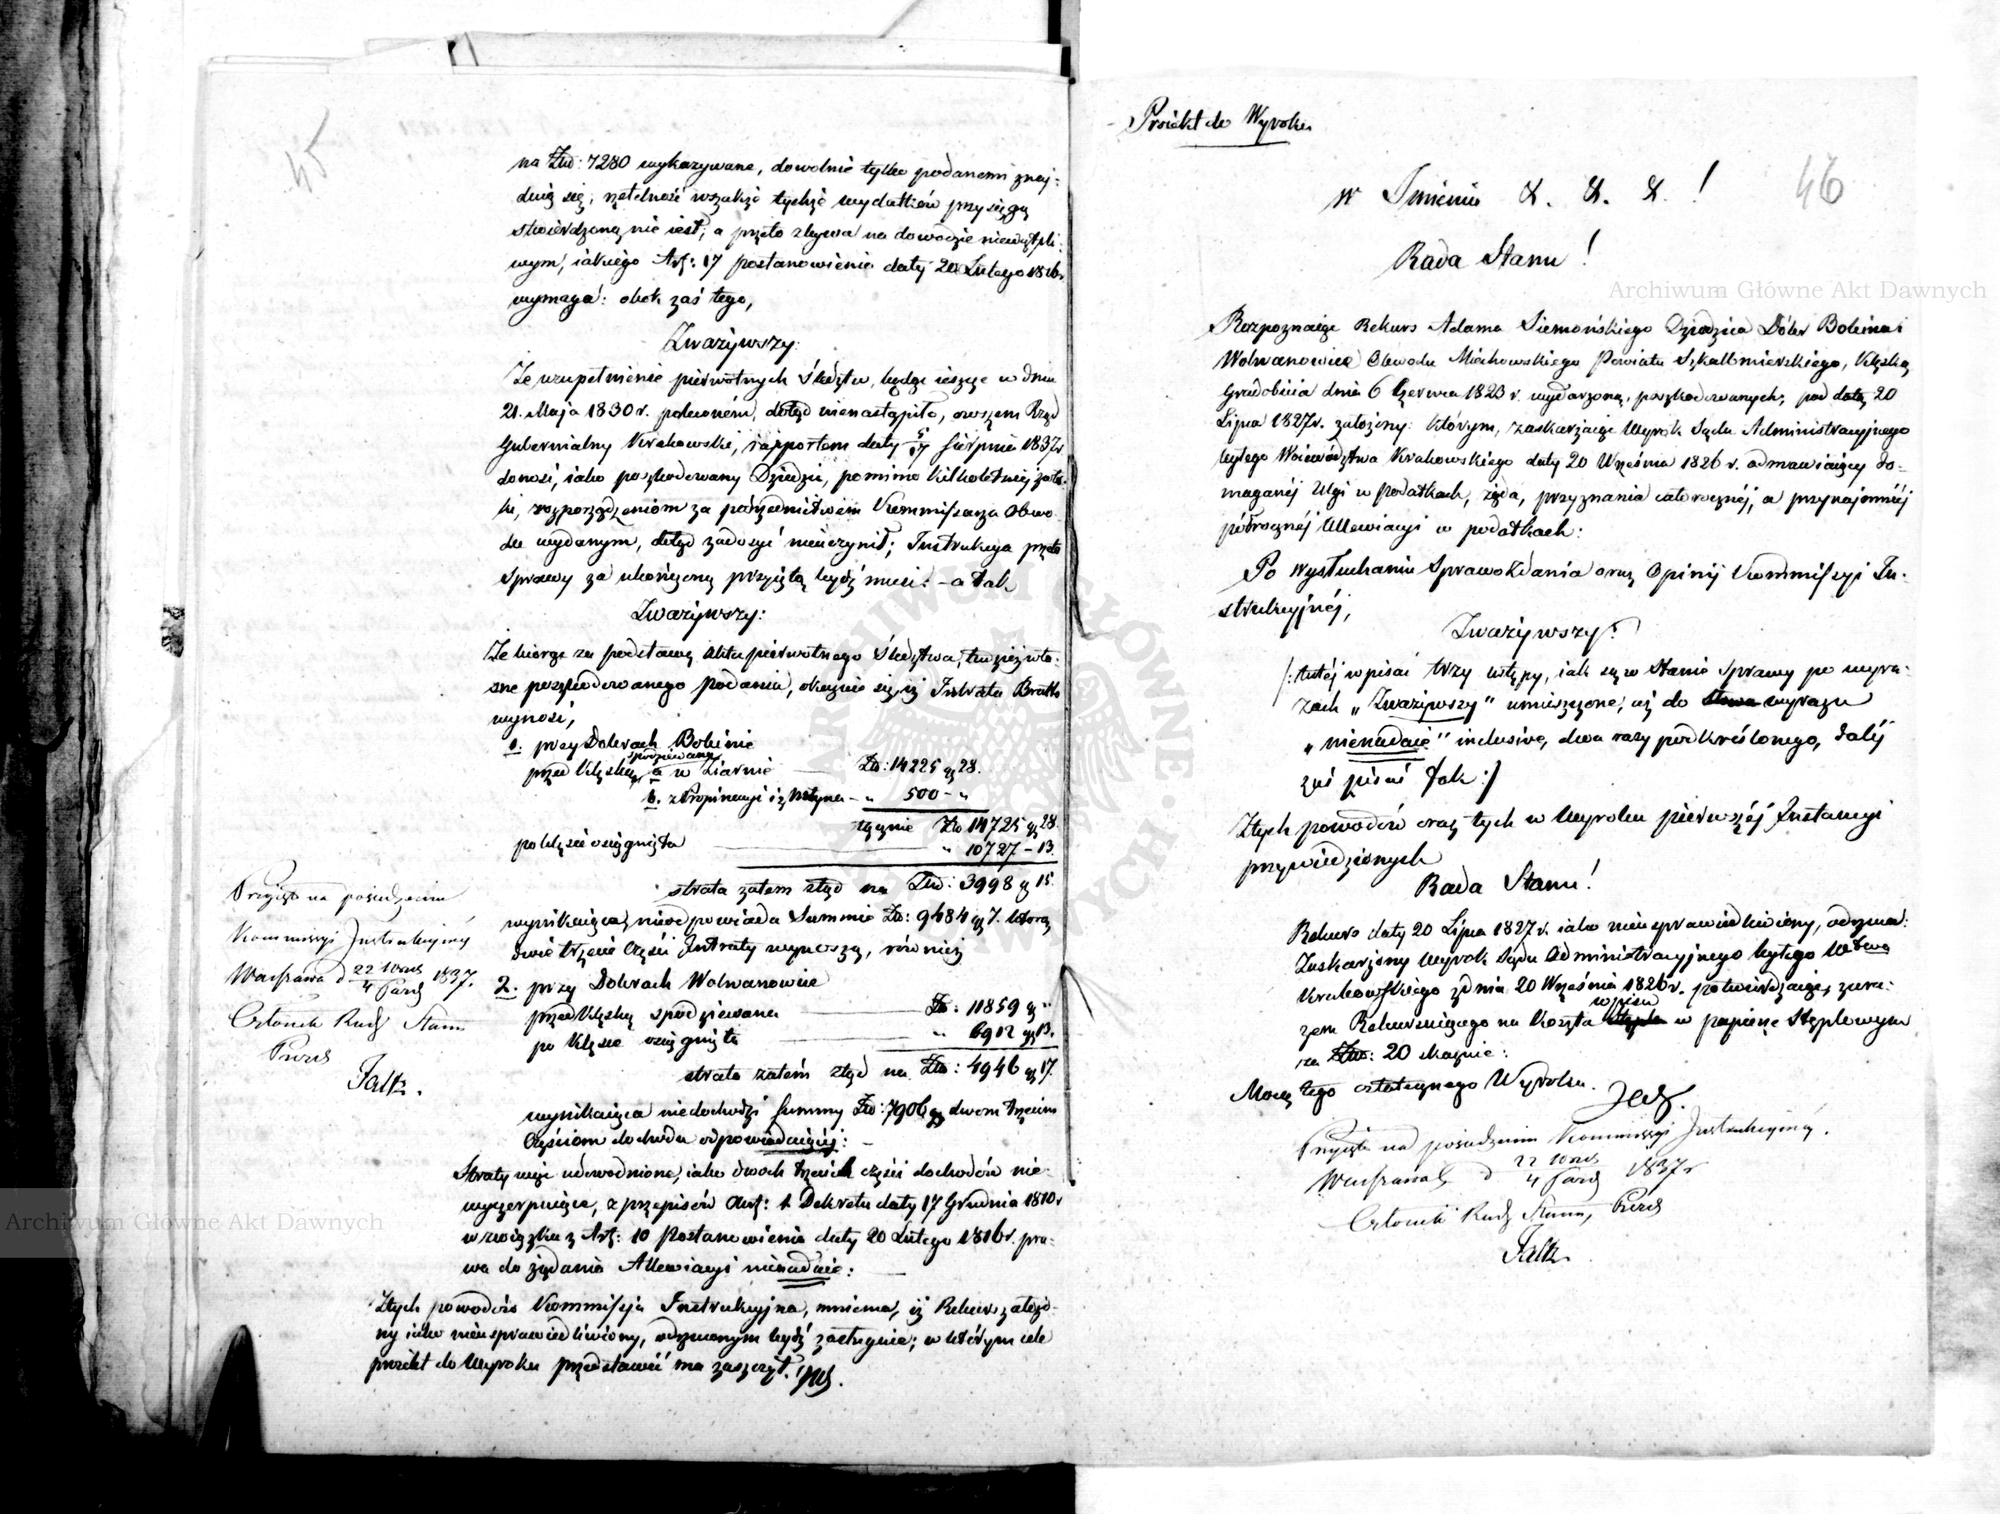 45
na Złp: 7280 wykazywane, dowolnie tylko podanemi znaj-
duią się, rzetelność wszakże tychże wydatków przysięgą
stwierdzoną nie iest; a przeto zbywa na dowodzie niewątpli-
wym, iakiego Art: 17 postanowienia daty 20 Lutego 1816 r.
wymaga: obok zaś tego,
Zważywszy:
Że uzupełnienie pierwotnych Śledztw, będąc ieszcze w dniu
21. Maja 1830 r. polecone, dotąd nienastąpiło, owszem Rząd
Gubernialny Krakowski, rapportem daty 5/17 Sierpnia 1837 r
donosi, iako poszkodowany Dziedzic, pomimo kilkoletniej zwło-
ki, rozporządzeniom za pośrednictwem Kommissarza Obwo-
du wydanym, dotąd zadosyć nieuczynił; Instrukcya przeto
Sprawy za ukończoną przyiętą bydź musi: - a tak
Zważywszy:
Że biorąc za podstawę Akta pierwotnego Śledztwa, tudzież wła-
sne poszkodowanego podania, okazuie się, iż Intrata Brutto
wynosi,
1. przy Dobrach Bolinie
przed klęską spodziewana a w Ziarnie — Złp: 14225 gr 28.
b. z Propinacyi i z Młyna — " 500 - "
łącznie Złp 14725 gr 28.
po klęsce osiągnięta — " 10727 - 13.
strata zatem ztąd na Złp: 3998 gr 15.
wynikaiąca, nieodpowiada Summie Złp: 9484 gr 7. którą
dwie trzecie Części Intraty wynoszą, również
2. przy Dobrach Wolwanowice
przed klęską spodziewana — Złp: 11859 gr "
po klęsce osiągnięta — " 6912 gr 13.
strata zatem ztąd na Złp: 4946 gr 17.
wynikaiąca niedochodzi Summy Złp: 7906 gr dwom trzecim
Częściom dochodu odpowiadaiącéj: —
Straty więc udowodnione, iako dwóch trzecich części dochodów nie-
wyczerpuiące, z przepisów Art: 1. Dekretu daty 17 Grudnia 1810 r
w związku z Art: 10 Postanowienia daty 20 Lutego 1816 r. pra-
wa do żądania Allewiacyi nienadaie: —
Z tych powodów Kommissya Instrukcyjna, mniema, iż Rekurs założo-
ny iako nieusprawiedliwiony, odrzuconym bydź zasługuie; w którym celu
proiekt do Wyroku przedstawić ma zaszczyt.
Przyięto na posiedzeniu
Kommissyi Instrukcyinéj
Warszawa d 22 / 4 1837.
Członek Rady Stanu
Prezes
Faltz.
Proiekt do Wyroku
46
w Imieniu &. &. &. !
Rada Stanu!
Rozpoznaiąc Rekurs Adama Siemońskiego Dziedzica Dóbr Bolina i
Wolwanowice Obwodu Miechowskiego Powiatu Szkalbmierskiego, Klęską
Gradobicia dnia 6 Czerwca 1823 r. wydarzoną, poszkodowanych; pod datą 20
Lipca 1827 r. założony: którym, zaskarżaiąc Wyrok Sądu Administracyjnego
byłego Województwa Krakowskiego daty 20 Września 1826 r. odmawiaiący do-
maganéj Ulgi w podatkach, żąda, przyznania całorocznéj, a przynajmniéj
półrocznéj Allewiacyi w podatkach:
Po wysłuchaniu Sprawozdania oraz Opinij Kommissyi In-
strukcyjnéj,
Zważywszy:
/: tutéj wpisać trzy ustępy, iak są w Stanie Sprawy po wyra-
zach „Zważywszy" umieszczone, aż do słowa wyrazu
„nienadaie" inclusive, dwa razy podkreślonego, daléj
zaś pisać tak :/
Z tych powodów oraz tych w Wyroku pierwszéj Instancyi
przywiedzionych
Rada Stanu!
Rekurs daty 20 Lipca 1827 r. iako nieusprawiedliwiony, odrzuca:
Zaskarżony Wyrok Sądu Administracyjnego byłego Wdztwa
Krakowskiego z dnia 20 Września 1826 r. potwierdzaiąc, zara-
zem Rekurruiącego na koszta wpisu w papierze Stęplowym
za Złp: 20 skazuie:
Mocą tego ostatecznego Wyroku.
Przyięto na posiedzeniu Kommissyi Instrukcyinéj.
Warszawa d 22 / 4 1837 r
Członek Rady Stanu, Prezes
Faltz.
Archiwum Główne Akt Dawnych
Archiwum Główne Akt Dawnych
ARCHIWUM GŁÓWNE AKT DAWNYCH